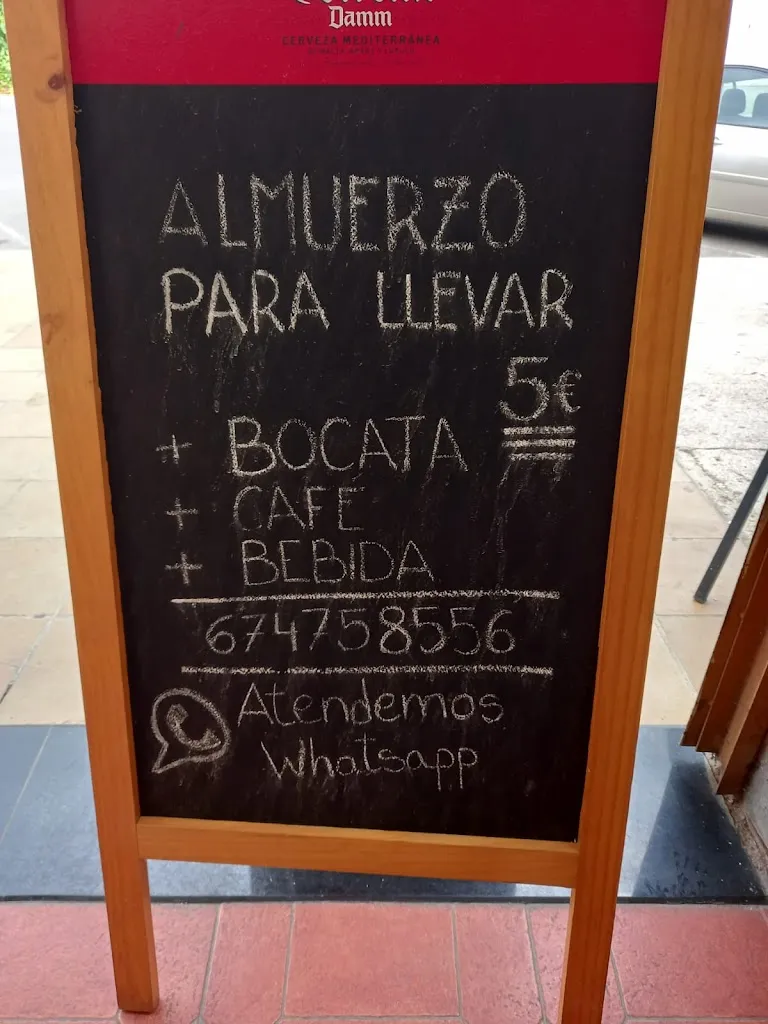 Damm
CERVEZA MEDITERRÁNEA
ALMUERZO
PARA LLEVAR
5€
+ BOCATA
+ CAFE
+ BEBIDA
674758556
Atendemos
Whatsapp